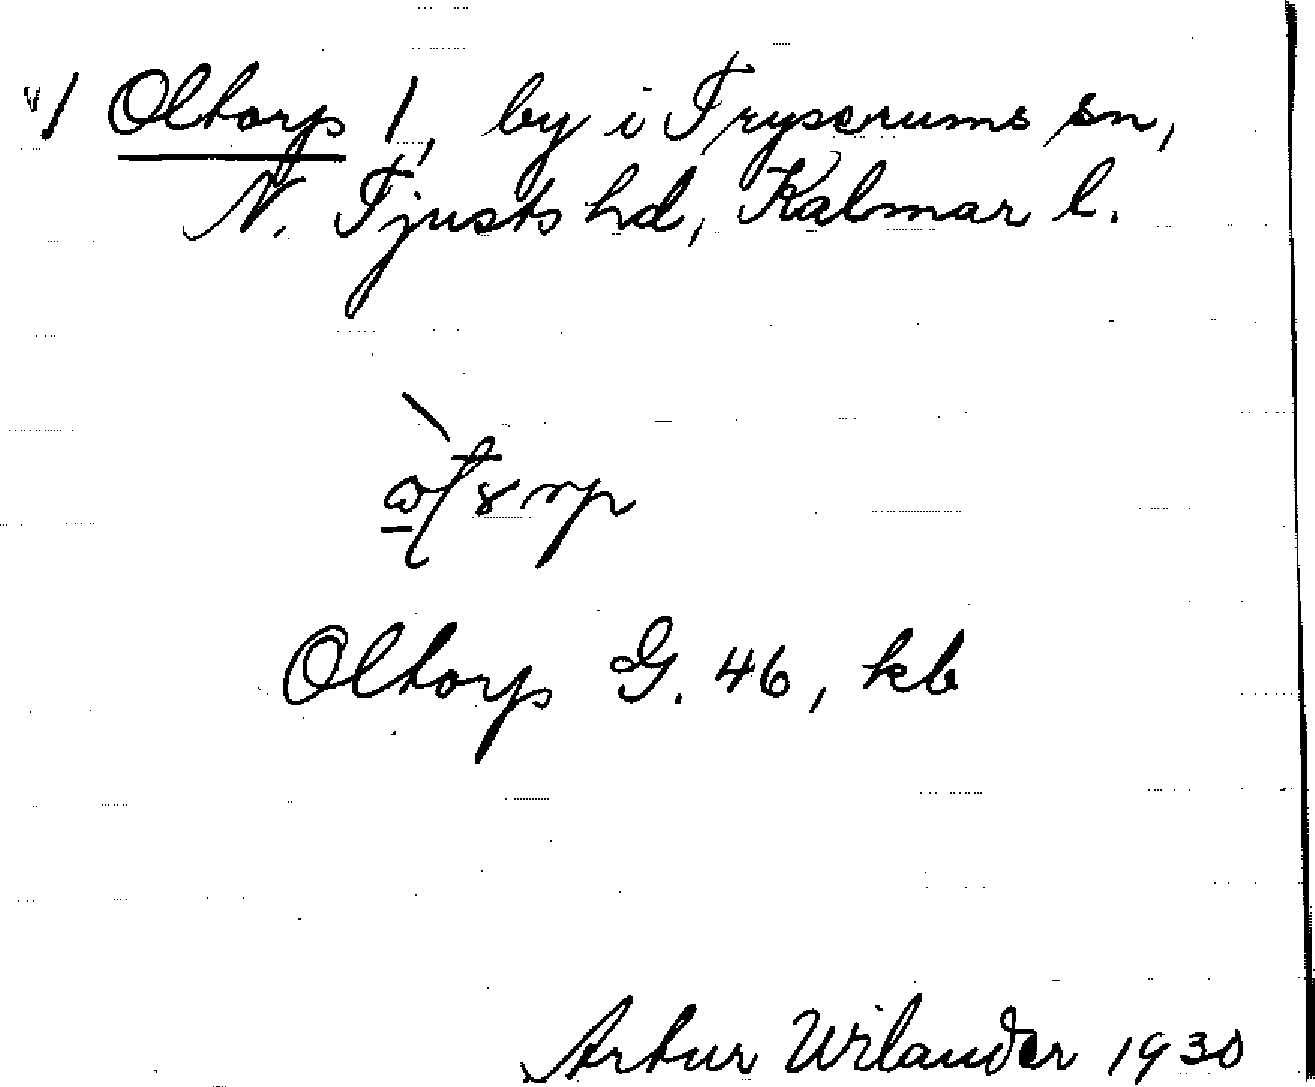 v) / Oltorp /, by i Tryserums sn,
N. Tjusts hd, Kalmar l.
Oltorp G. 46, kb
Arthur Wilander 1930